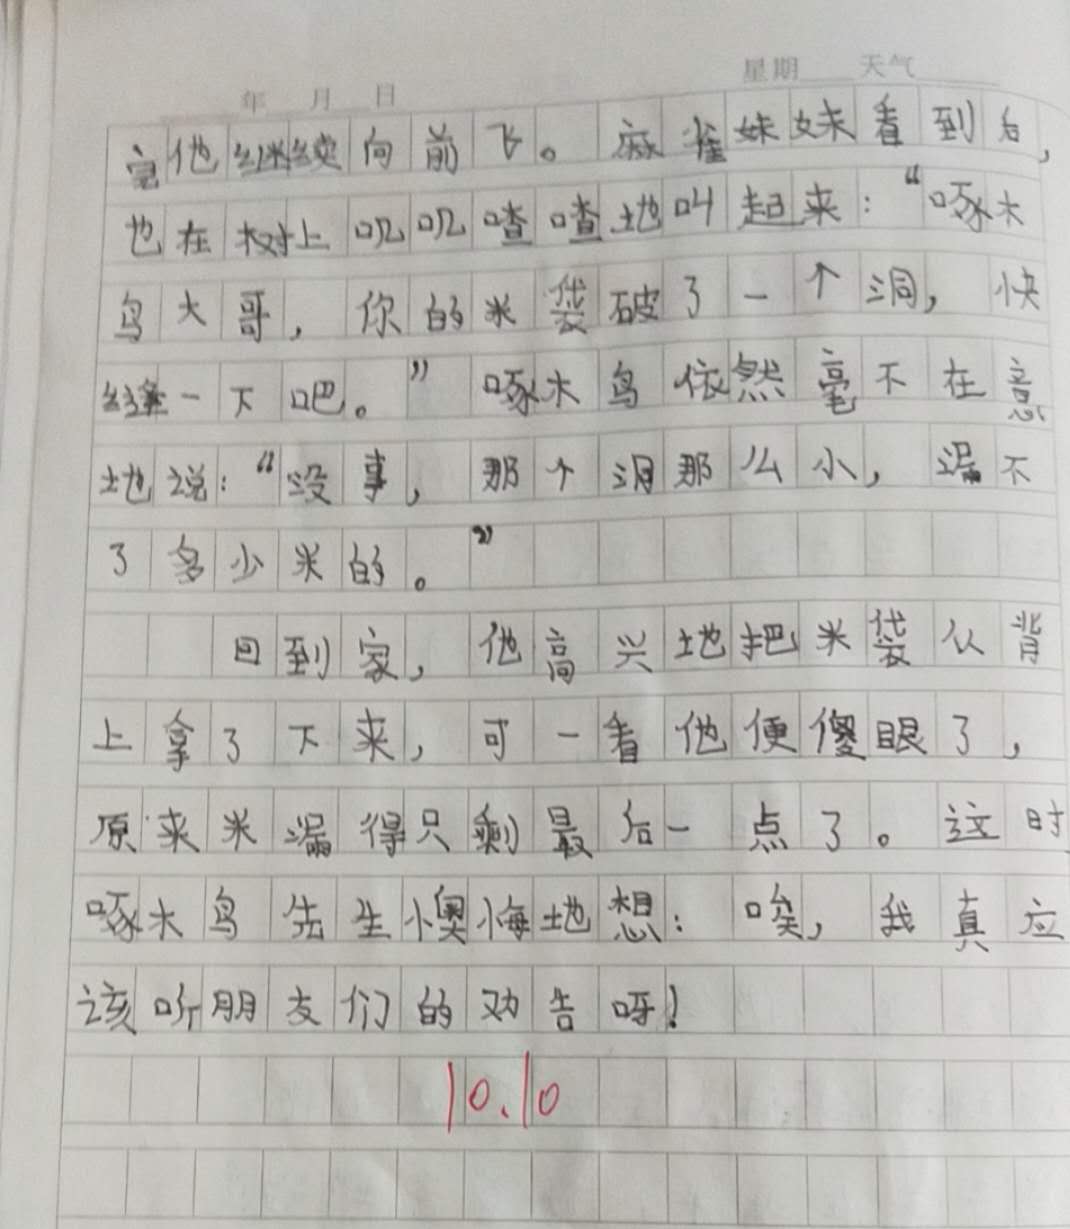 年 月 日 星期 天气
完他继续向前飞。麻雀妹妹看到后，
也在树上叽叽喳喳地叫起来：“啄木
鸟大哥，你的米袋破了一个洞，快
缝一下吧。”啄木鸟依然毫不在意
地说：“没事，那个洞那么小，漏不
了多少米的。”
回到家，他高兴地把米袋从背
上拿了下来，可一看他便傻眼了，
原来米漏得只剩最后一点了。这时
啄木鸟先生懊悔地想：唉，我真应
该听朋友们的劝告呀！
10.10